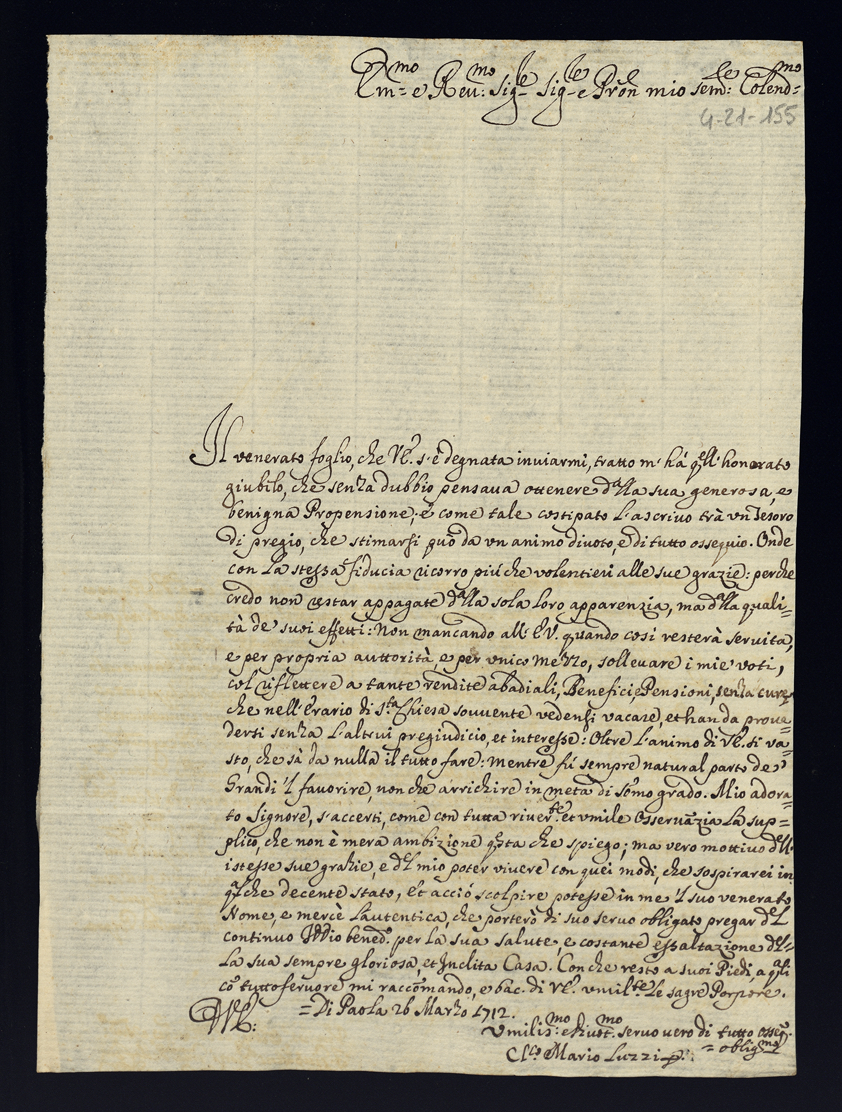 Em:mo e Reu:mo Sig:re Sig:re e Pron mio sem:re Colend:mo
4-21-155
Il venerato foglio, che VE. s'è degnata inviarmi, tratto m'há qll'honorato
giubilo, che senza dubbio pensava ottenere dalla sua generosa, e
benigna Propensione; é come tale costipato l'ascrivo trà vn Tesoro
di pregio, che stimarsi può da vn animo divoto, e di tutto ossequio. Onde
con la stessa fiducia ricorro più che volentieri alle sue grazie: perche
credo non restar appagate dalla sola loro apparenzia, ma dalla quali=
tà de' suoi effetti: Non mancando all'E.V. quando cosi resterà servita,
e per propria auttorità, e per vnico mezzo, solleuare i miei voti,
col riflettere a tante rendite abadiali, Beneficii, Pensioni, senza cure,
che nell'Erario di s.ta Chiesa souuente vedensi vacare, et han da proue=
dersi senza l'altrui pregiudicio, et interesse: Oltre l'animo di VE. si va=
sto, che sà da nulla il tutto fare: mentre fú sempre natural parto de'
Grandi 'l favorire, non che arrichire in metà di somo grado. Mio adora=
to Signore, s'accerti, come con tutta river.te et vmile osservazia la sup=
plico, che non è mera ambizione qsta che spiego; ma vero mottivo dell'
istesse sue grazie, e del mio poter vivere con quei modi, che sospirarei in
qlche decente stato, et acciò scolpire potesse in me 'l suo venerato
Nome, e mercè l'autentica, che porterò di suo servo obligato pregar del
continuo Iddio bened.o per la sua salute, e costante essaltazione del=
la sua sempre gloriosa, et Inclita Casa. Con che resto a suoi Piedi, a qli
co tutto feruore mi raccomando, e bac. di VE. vmil.te le sagre Porpore.
= Di Paola 26 Marzo 1712.
VE:
Vmilis:mo e Diuot:mo servo vero di tutto osseq.
= oblig:mo
Cl.co Mario Luzzi